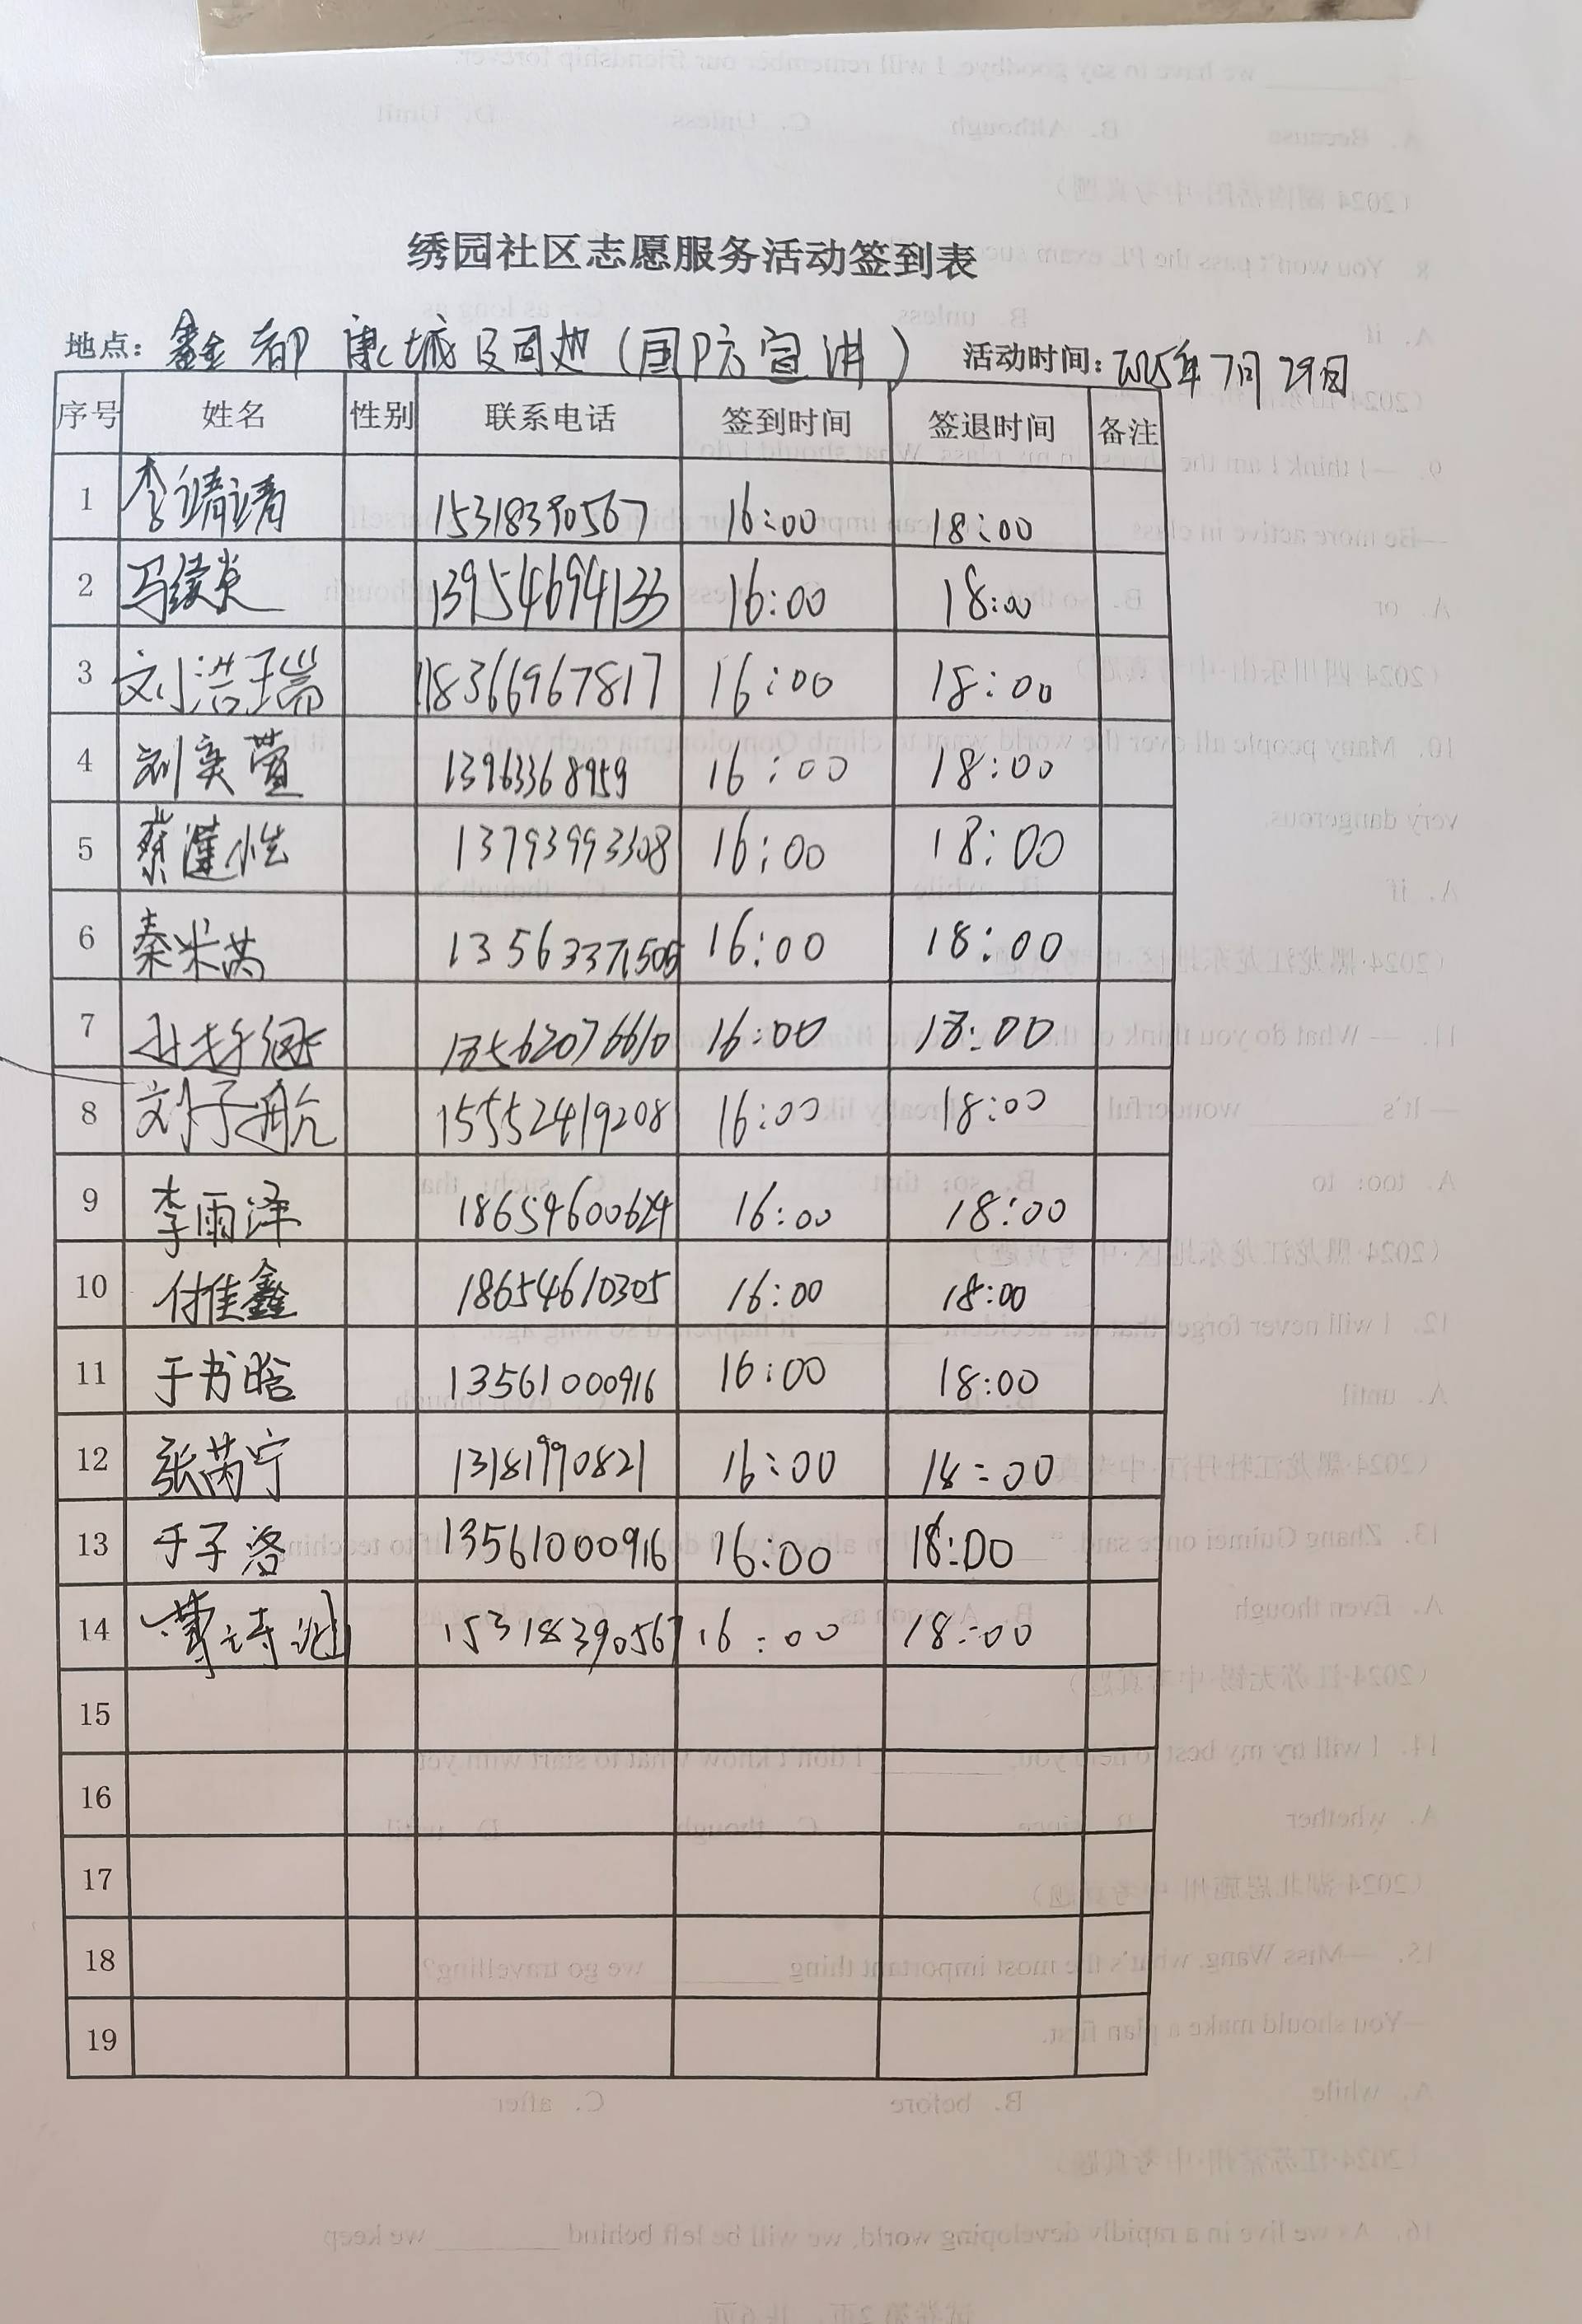 绣园社区志愿服务活动签到表
地点：鑫都康城及周边（国防宣讲） 活动时间：2025年7月29日
序号 姓名 性别 联系电话 签到时间 签退时间 备注
1 李靖靖 15318390567 16:00 18:00
2 马绫炎 13954694133 16:00 18:00
3 刘浩瑞 18366967817 16:00 18:00
4 刘奕萱 13963368959 16:00 18:00
5 13793993308 16:00 18:00
6 秦米芮 13563371505 16:00 18:00
7 16:00 18:00
8 刘子航 15552419208 16:00 18:00
9 李雨泽 18654600624 16:00 18:00
10 付佳鑫 18654610305 16:00 18:00
11 于书晗 13561000916 16:00 18:00
12 张芮宁 13181990821 16:00 18:00
13 于子洛 13561000916 16:00 18:00
14 15318390567 16:00 18:00
15
16
17
18
19